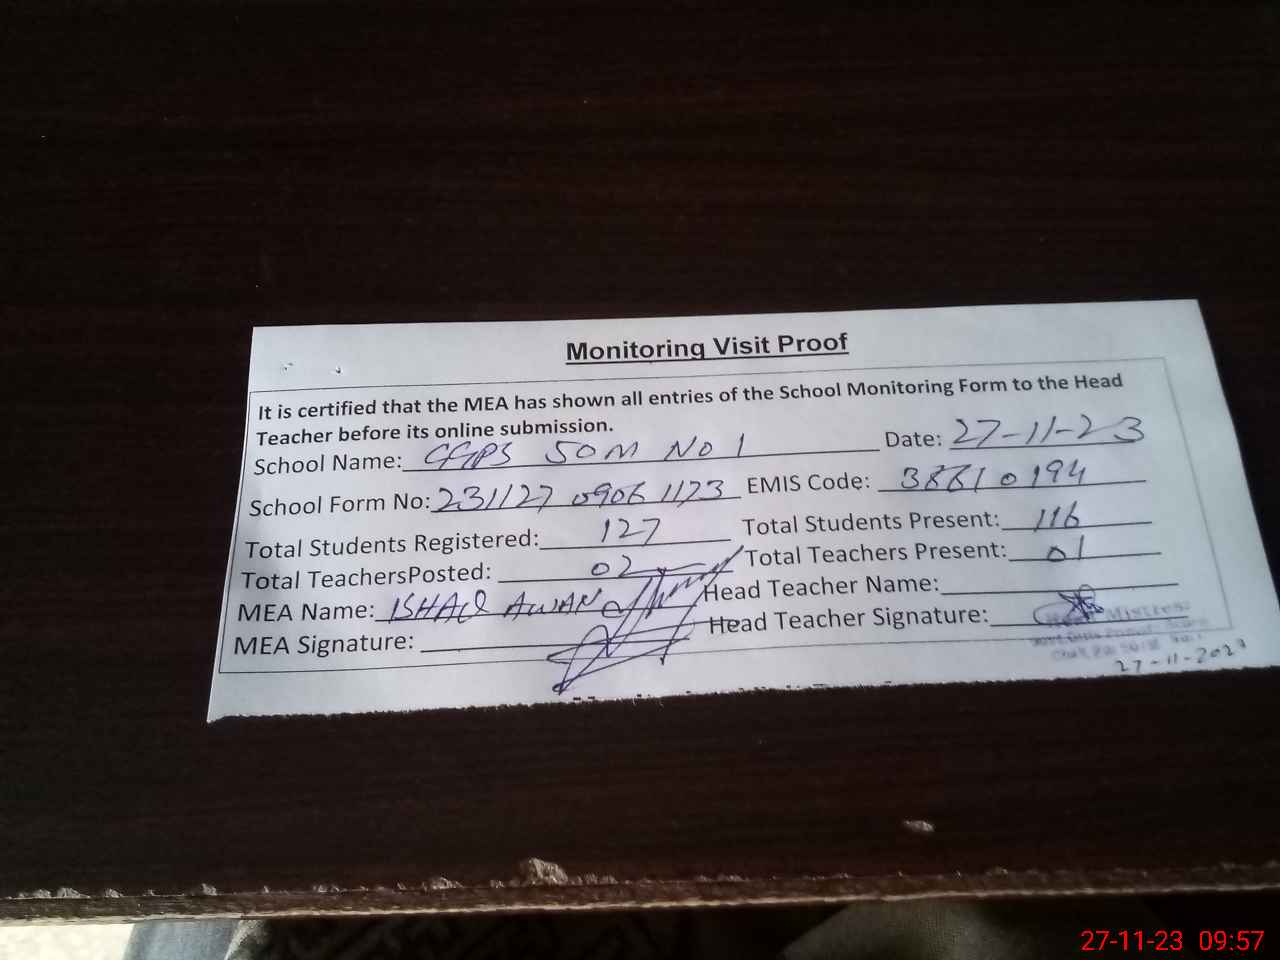 Monitoring Visit Proof
It is certified that the MEA has shown all entries of the School Monitoring Form to the Head
Teacher before its online submission.
School Name: GGPS 50M No 1 Date: 27-11-23
School Form No: 231127 09061173 EMIS Code: 38810194
Total Students Registered: 127 Total Students Present: 116
Total TeachersPosted: 02 Total Teachers Present: 01
MEA Name: ISHAQ AWAN Head Teacher Name:
MEA Signature: Head Teacher Signature:
Mistress
27-11-2023
27-11-23 09:57